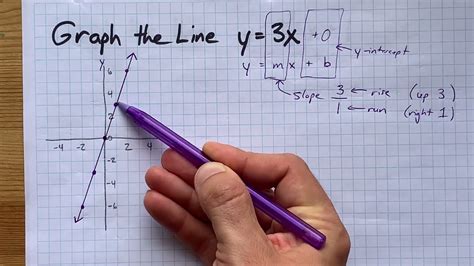 Graph the Line y = 3x + 0
y = mx + b
y-intercept
slope 3/1
rise (up 3)
run (right 1)
y
6
4
2
0
-4 -2 2 4
-2
-4
-6